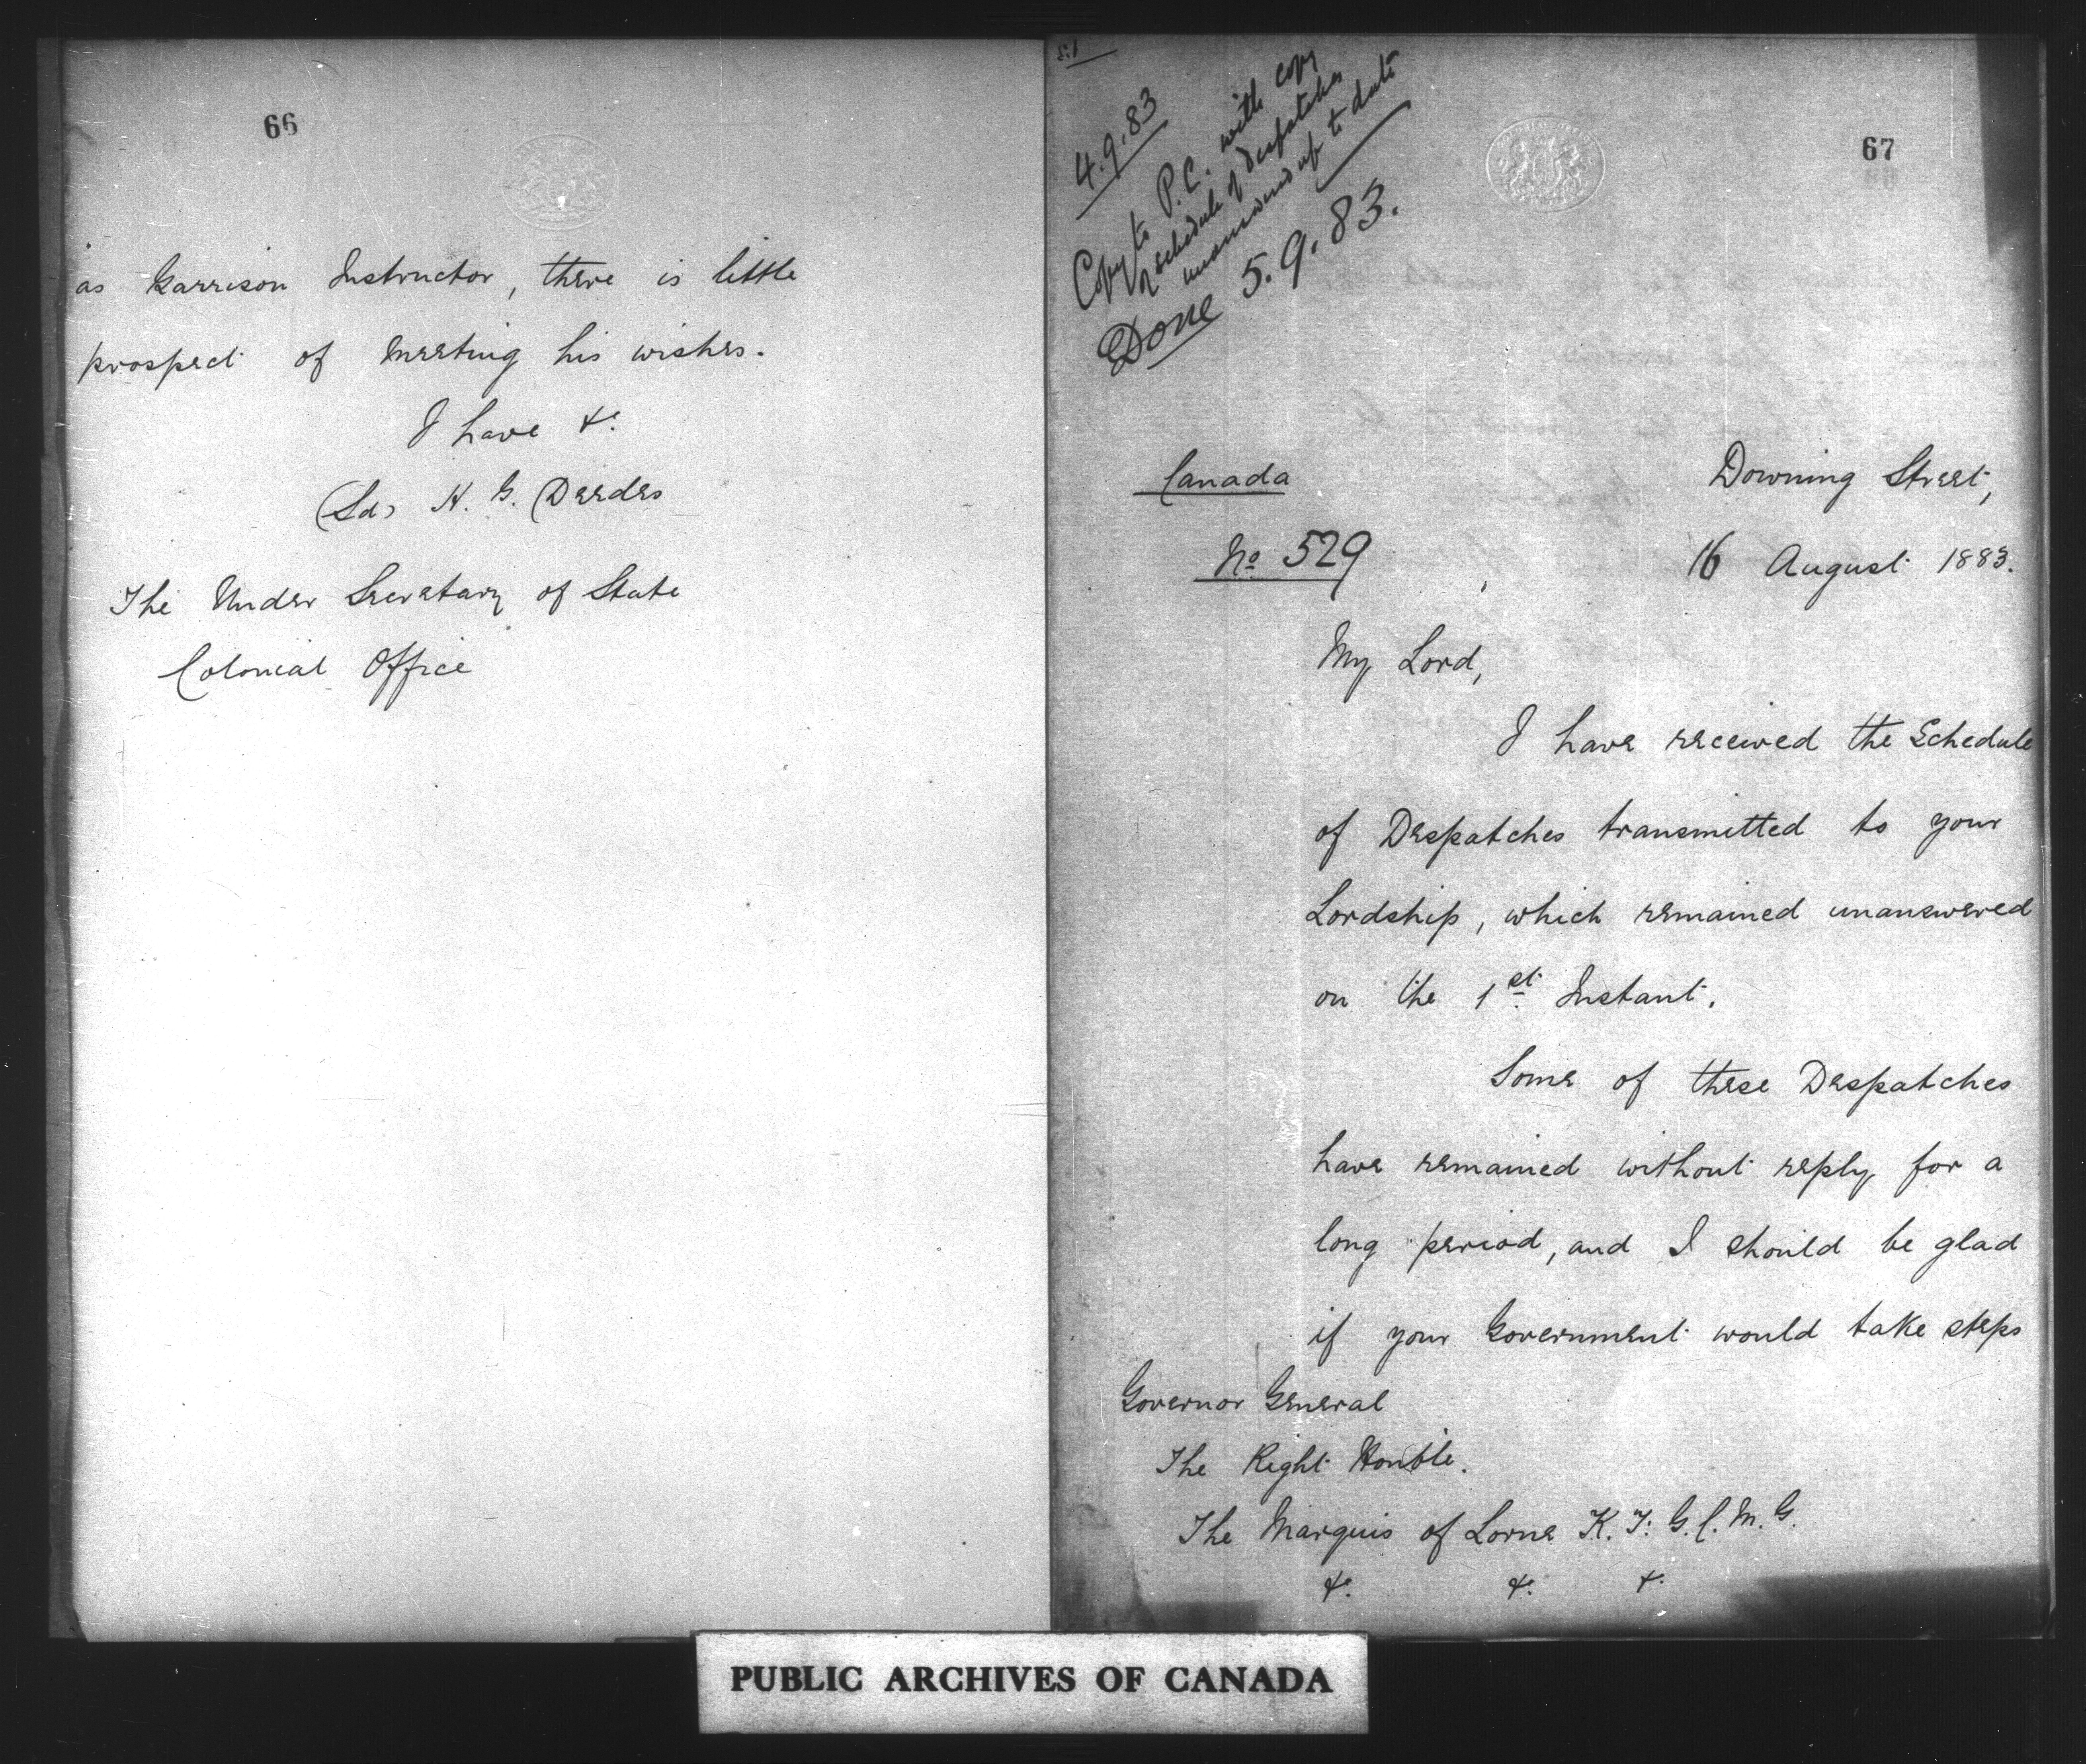 66
as Garrison Instructor, there is little
prospect of meeting his wishes.
I have &c.
(Sd) H. G. Deedes
The Under Secretary of State
Colonial Office
4.9.83
Copy to P.C. with copy
of schedule of despatches
unanswered up to date
Done 5.9.83.
67
Canada
No 529
Downing Street,
16 August 1883.
My Lord,
I have received the Schedule
of Despatches transmitted to your
Lordship, which remained unanswered
on the 1st Instant.
Some of these Despatches
have remained without reply for a
long period, and I should be glad
if your Government would take steps
Governor General
The Right Honble.
The Marquis of Lorne K.T. G.C.M.G.
&c. &c. &c.
PUBLIC ARCHIVES OF CANADA